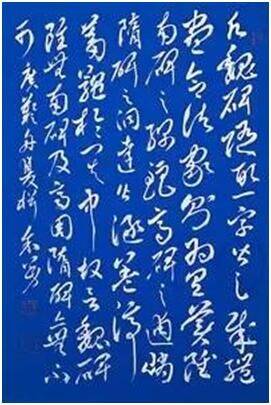 凡魏碑随取一家皆足成體
盡合諸家則為具美雖
南碑之綿麗齊碑之逋峭
隋碑之洞達皆涵蓋渟
蓄蘊於其中故言魏碑
雖無南碑及齊周隋碑亦無不
可廣藝舟雙楫